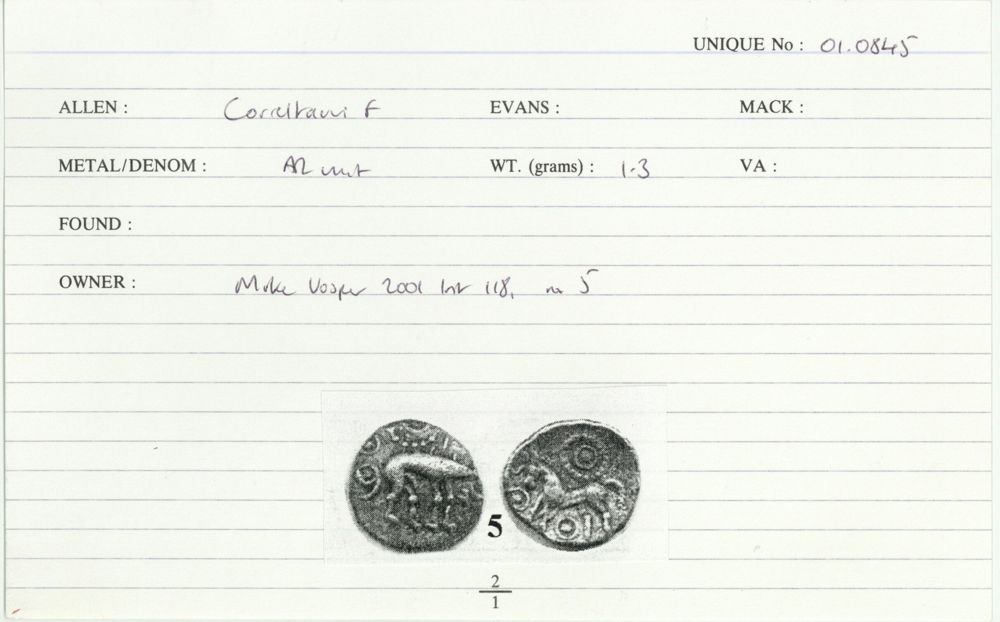 UNIQUE No : 01.0845
ALLEN : Correltauvi F EVANS : MACK :
METAL/DENOM : AR unit WT. (grams) : 1.3 VA :
FOUND :
OWNER : Mike Vosper 2001 list 118, no 5
5
2
1